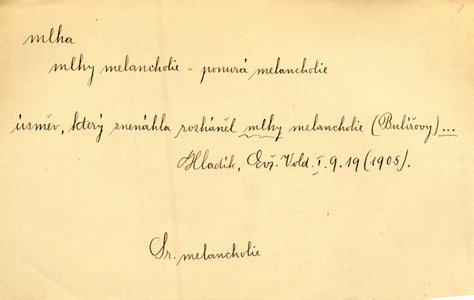 mlha
mlhy melancholie - ponurá melancholie
úsměv, který znenáhla rozháněl mlhy melancholie (Bulířovy) ...
Hladík, Evž. Vold. I. 9. 19 (1905).
Sr. melancholie